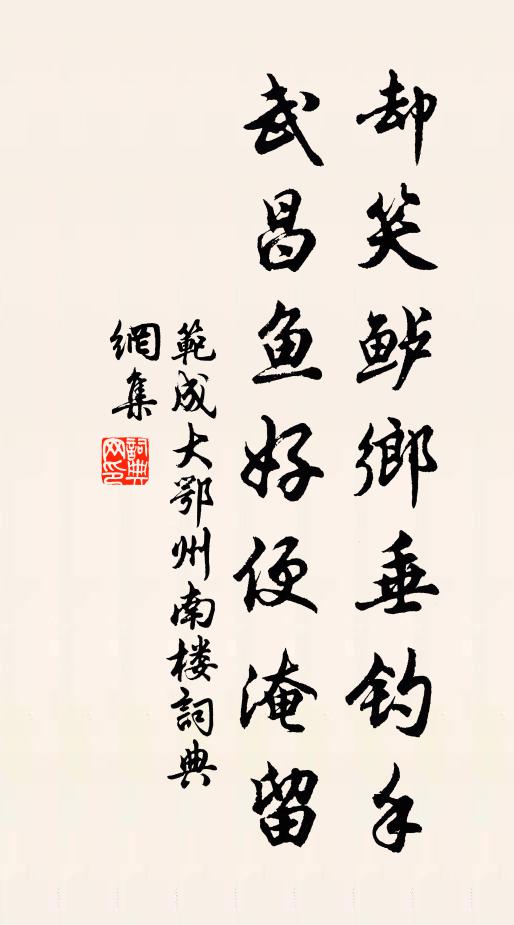 却笑鲈鄉垂钓手
武昌鱼好便淹留
範成大鄂州南楼詞典
網集
詞典网印